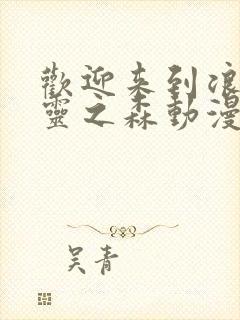 歡迎来到浪
靈之森動漫
吴青